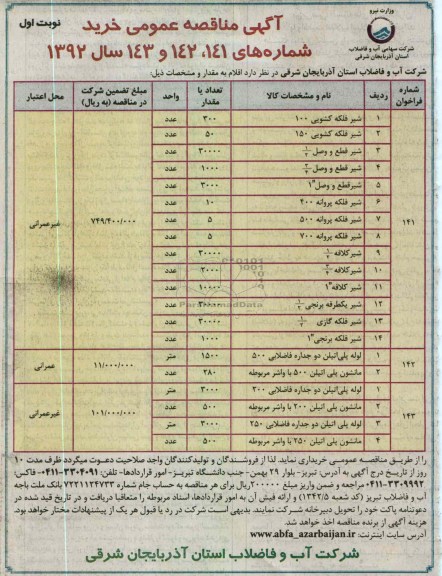 وزارت نیرو
شرکت سهامی آب و فاضلاب
استان آذربایجان شرقی
نوبت اول
آگهی مناقصه عمومی خرید
شماره‌های ۱۴۱، ۱۴۲ و ۱۴۳ سال ۱۳۹۲
شرکت آب و فاضلاب استان آذربایجان شرقی در نظر دارد اقلام به مقدار و مشخصات ذیل:
شماره فراخوان ردیف نام و مشخصات کالا تعداد یا مقدار واحد مبلغ تضمین شرکت در مناقصه (به ریال) محل اعتبار
۱۴۱ ۷۴۹/۴۰۰/۰۰۰ غیرعمرانی
۱ شیر فلکه کشویی ۱۰۰ ۳۰۰ عدد
۲ شیر فلکه کشویی ۱۵۰ ۵۰ عدد
۳ شیر قطع و وصل ۳۰۰۰۰ عدد
۴ شیر قطع و وصل ۱۰۰۰ عدد
۵ شیرقطع و وصل ۱" ۳۰۰۰ عدد
۶ شیر فلکه پروانه ۴۰۰ ۱۰ عدد
۷ شیر فلکه پروانه ۵۰۰ ۵ عدد
۸ شیر فلکه پروانه ۷۰۰ ۵ عدد
۹ شیرکلافه ۳۰۰۰۰ عدد
۱۰ شیر کلافه ۳۰۰۰ عدد
۱۱ شیر کلافه ۱" ۱۰۰۰۰ عدد
۱۲ شیر یکطرفه برنجی عدد
۱۳ شیر فلکه گازی ۳۰۰۰۰ عدد
۱۴ شیر فلکه برنجی ۱" ۱۰۰۰ عدد
۱۴۲ ۱۱/۰۰۰/۰۰۰ عمرانی
۱ لوله پلی‌اتیلن دو جداره فاضلابی ۵۰۰ ۱۵۰۰ متر
۲ مانشون پلی اتیلن ۵۰۰ با واشر مربوطه ۲۸۰ عدد
۱۴۳ ۱۰۱/۰۰۰/۰۰۰ غیرعمرانی
۱ لوله پلی‌اتیلن دو جداره فاضلابی ۲۰۰ ۳۰۰۰ متر
۲ مانشون پلی اتیلن ۲۰۰ با واشر مربوطه ۵۰۰ عدد
۳ لوله پلی اتیلن دو جداره فاضلابی ۲۵۰ ۳۰۰۰ متر
۴ مانشون پلی اتیلن ۲۵۰ با واشر مربوطه ۵۰۰ عدد
را از طریق مناقصه عمومی خریداری نماید. لذا از فروشندگان و تولیدکنندگان واجد صلاحیت دعوت میگردد ظرف مدت ۱۰
روز از تاریخ درج آگهی به آدرس: تبریز- بلوار ۲۹ بهمن- جنب دانشگاه تبریز- امور قراردادها- تلفن: ۳۳۰۴۰۹۱-۰۴۱۱ فاکس:
۳۳۰۹۹۹۲-۰۴۱۱ مراجعه و ضمن واریز مبلغ ۲۰۰۰۰۰ ریال برای هر مناقصه به حساب جام شماره ۷۲۲۱۱۲۴۷۳۳ بانک ملت باجه
آب و فاضلاب تبریز (کد شعبه ۱۳۴۲/۵) و ارائه فیش آن به امور قراردادها، اسناد مربوطه را متعاقبا دریافت و در تاریخ قید شده در
دعوتنامه پاکت خود را تحویل دبیرخانه شرکت نمایند. بدیهی است شرکت در رد یا قبول هر یک از پیشنهادات مختار خواهد بود.
هزینه آگهی از برنده مناقصه اخذ خواهد شد.
آدرس سایت اینترنت: www.abfa_azarbaijan.ir
شرکت آب و فاضلاب استان آذربایجان شرقی